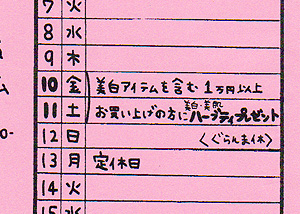 7 火
8 水
9 木
10 金 美白アイテムを含む1万円以上
11 土 お買い上げの方に美白・美肌ハーブティプレゼント
12 日 〈ぐらんま休〉
13 月 定休日
14 火
15 水